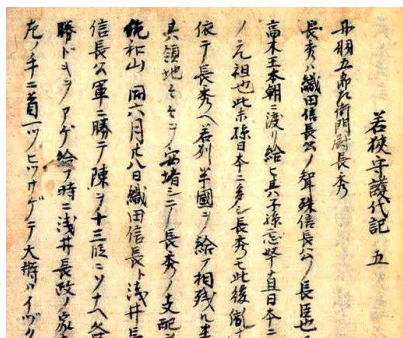 若狭守護代記 五
丹羽五郎左衛門尉長秀
長秀ハ織田信長公ノ聟殊信長公ノ長臣也
高木王本朝ニ渡リ給ヒ其子孫 直日本ニ
ノ元祖也此末孫日本ニ多シ長秀モ此後
依テ長秀ヘ若州半國ヲ給フ相残ル半
其領地 安堵シテ長秀ノ支配
佐和山 同六月廿八日織田信長ト浅井長
信長公軍ニ勝テ陳ヲ十三段ニソナヘ
勝ドキヲアゲ給フ時ニ浅井長政ノ家
左ノ手ニ首一ツヒツサゲテ大将ハイヅク